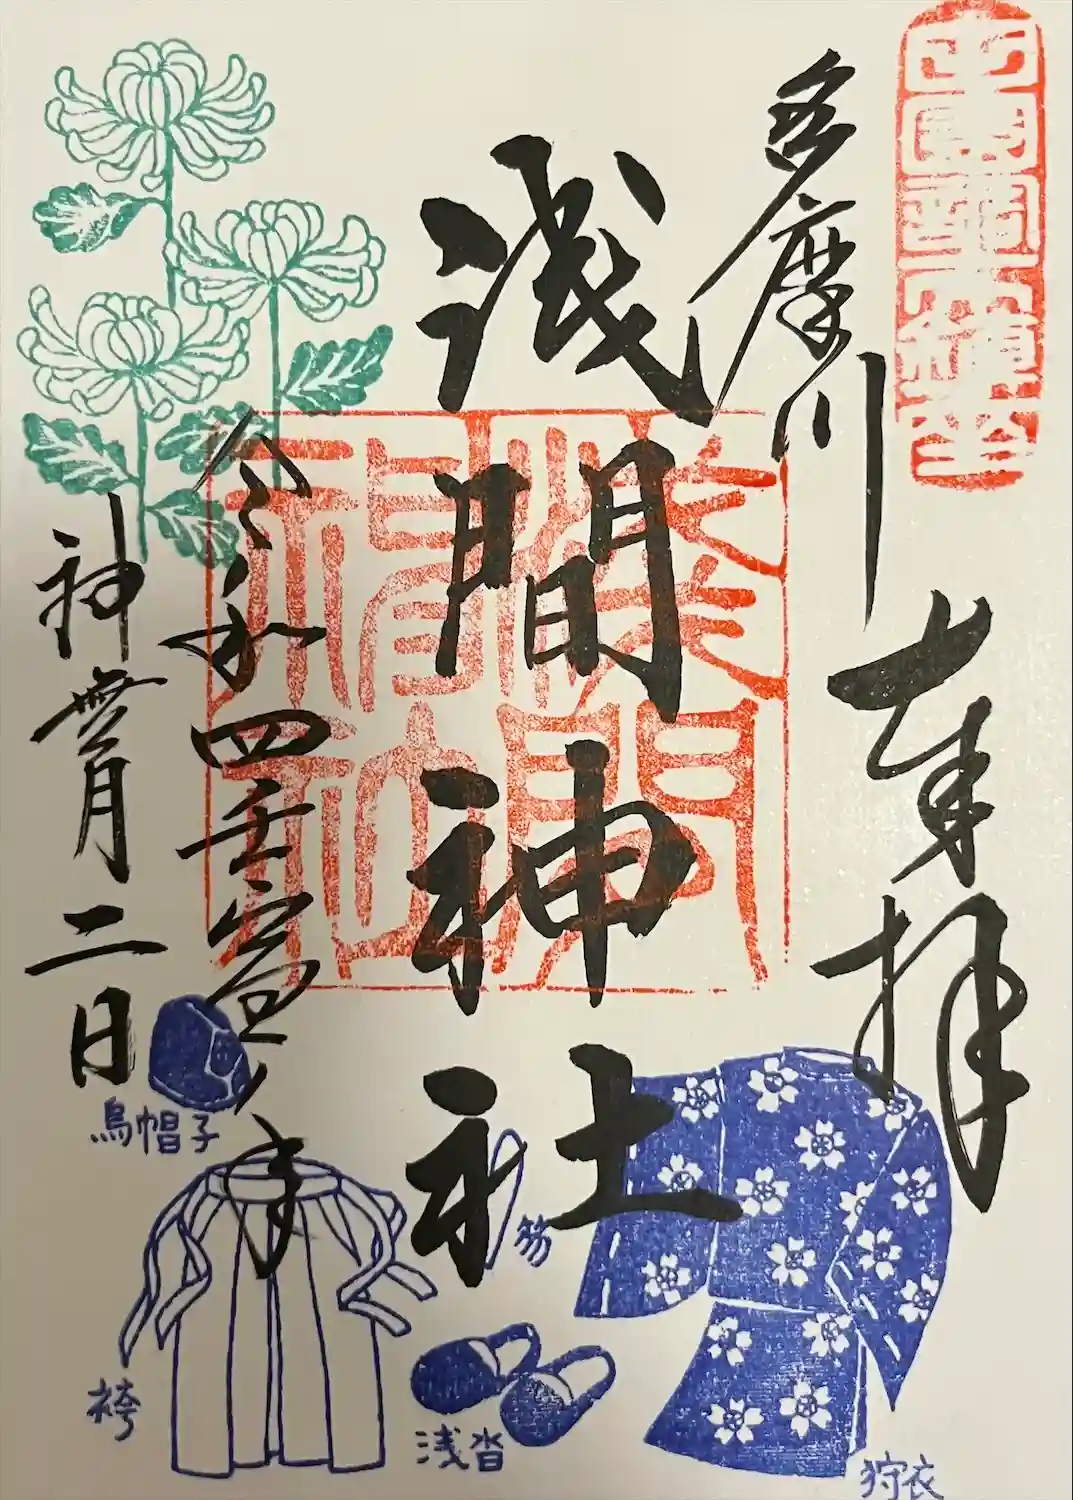 奉拝
多摩川
浅間神社
令和四壬寅年
神無月二日
烏帽子
笏
袴
浅沓
狩衣